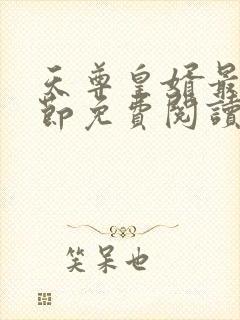 天尊皇婿最
節免費閱讀
笑呆也